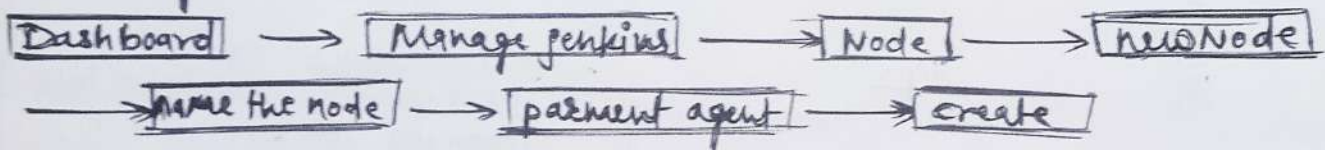 Dashboard → Manage jenkins → Node → new Node
→ name the node → parment agent → create